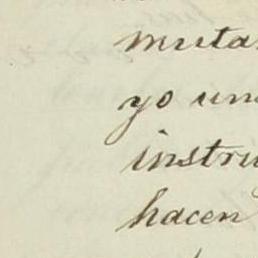 muta
yo un
instru
hacen